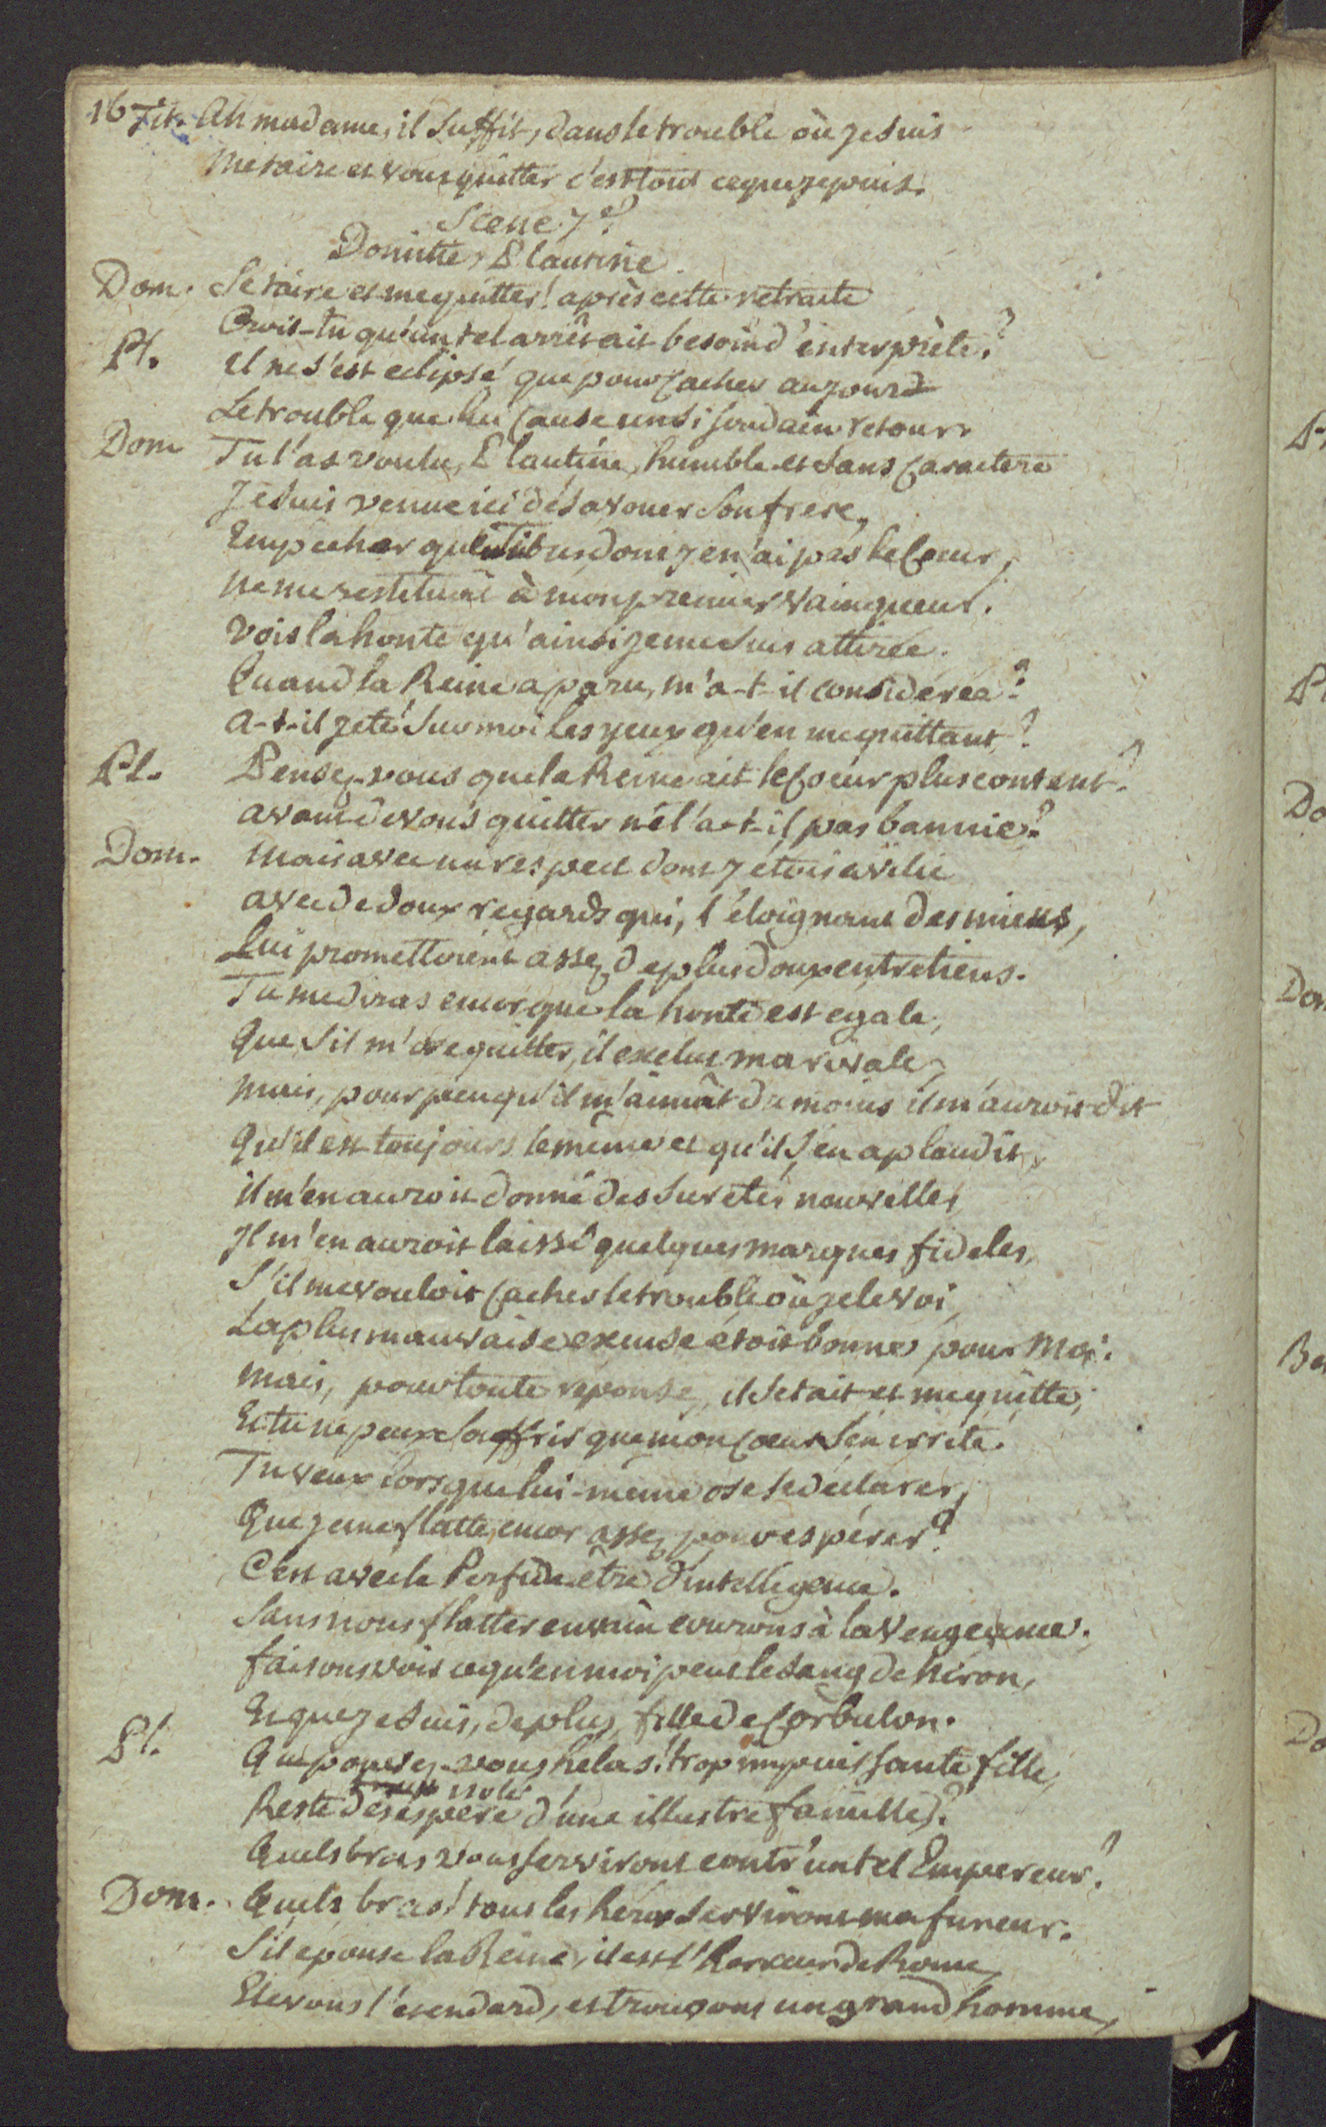 16 Tit. Ah madame, il suffit, dans le trouble où je suis
me taire et vous quitter c'est tout ce que je puis.
Scene 7e.
Domitie, Plautine.
Dom. Se taire et me quitter! après cette retraite
Crois-tu qu'un tel arrêt ait besoin d'interprète?
Pl. Il ne s'est eclipsé que pour cacher au jour
Le trouble que lui cause un si soudain retour.
Dom Tu l'as voulu, Plautine, humble et sans caractere
Je suis venue ici désavouer son frere,
Empêcher que Titus, dont je n'ai pas le coeur,
ne me restituât à mon premier vainqueur.
Vois la honte qu'ainsi je me suis attirée.
Quand la Reine a paru, m'a-t-il considérée?
a-t-il jeté sur moi les yeux qu'en me quittant?
Pl. Pensez-vous que la Reine ait le coeur plus content?
avant de vous quitter ne l'a-t-il pas bannie?
Dom. Mais avec un respect dont j'etois avilie
avec de doux regards qui, l'éloignant des miens,
Lui promettoient assez de plus doux entretiens.
Tu me diras encor que la honte est egale,
Que s'il m'ose quitter, il exclut ma rivale,
Mais, pour peu qu'il m'aimât du moins il m'auroit dit
Qu'il est toujours le même et qu'il s'en aplaudit,
il m'en auroit donné des suretés nouvelles
Il m'en auroit laissé quelques marques fideles,
S'il me vouloit cacher le trouble où je le voi,
La plus mauvaise excuse étoit bonne pour moi.
Mais, pour toute reponse, il se tait et me quitte,
Et tu ne peux souffrir que mon coeur s'en irrite.
Tu veux lorsque lui-même ose se declarer,
Que je me flatte encor assez pour espérer?
C'est avec le Perfide être d'intelligence.
Sans nous flatter en vain courons à la vengeance.
faisons voir ce qu'en moi peut le sang de Néron,
Et que je suis, de plus, fille de Corbulon.
Pl. Que pouvez-vous helas! trop impuissante fille,
isolé
Reste désespéré d'une illustre famille?
Quels bras vous serviront contr'un tel Empereur?
Dom. Quels bras! tous les héros serviront ma fureur.
S'il epouse la Reine, il est l'horreur de Rome,
Elevons l'etendard, et trouvons un grand homme,
Pl
Pl
Do
Dom
Ber
Do